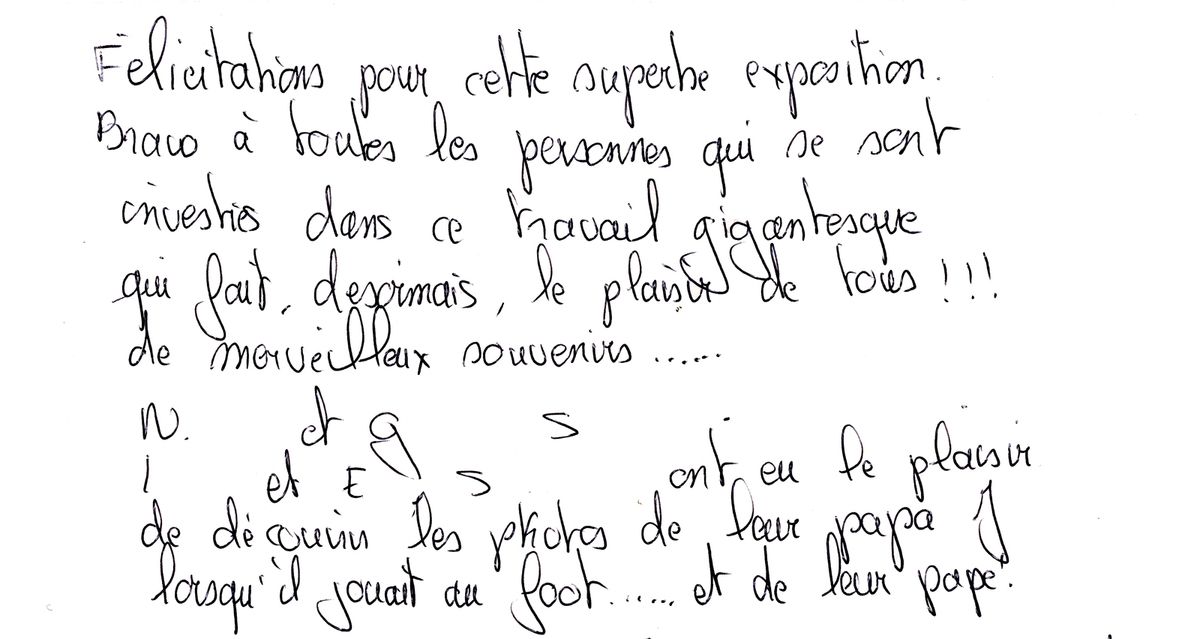 Félicitations pour cette superbe exposition.
Bravo à toutes les personnes qui se sont
investies dans ce travail gigantesque
qui fait, desormais, le plaisir de tous !!!
de merveilleux souvenirs ......
N. et g S
I et E S ont eu le plaisir
de découvrir les photos de leur papa J
lorsqu'il jouait au foot...... et de leur papé.